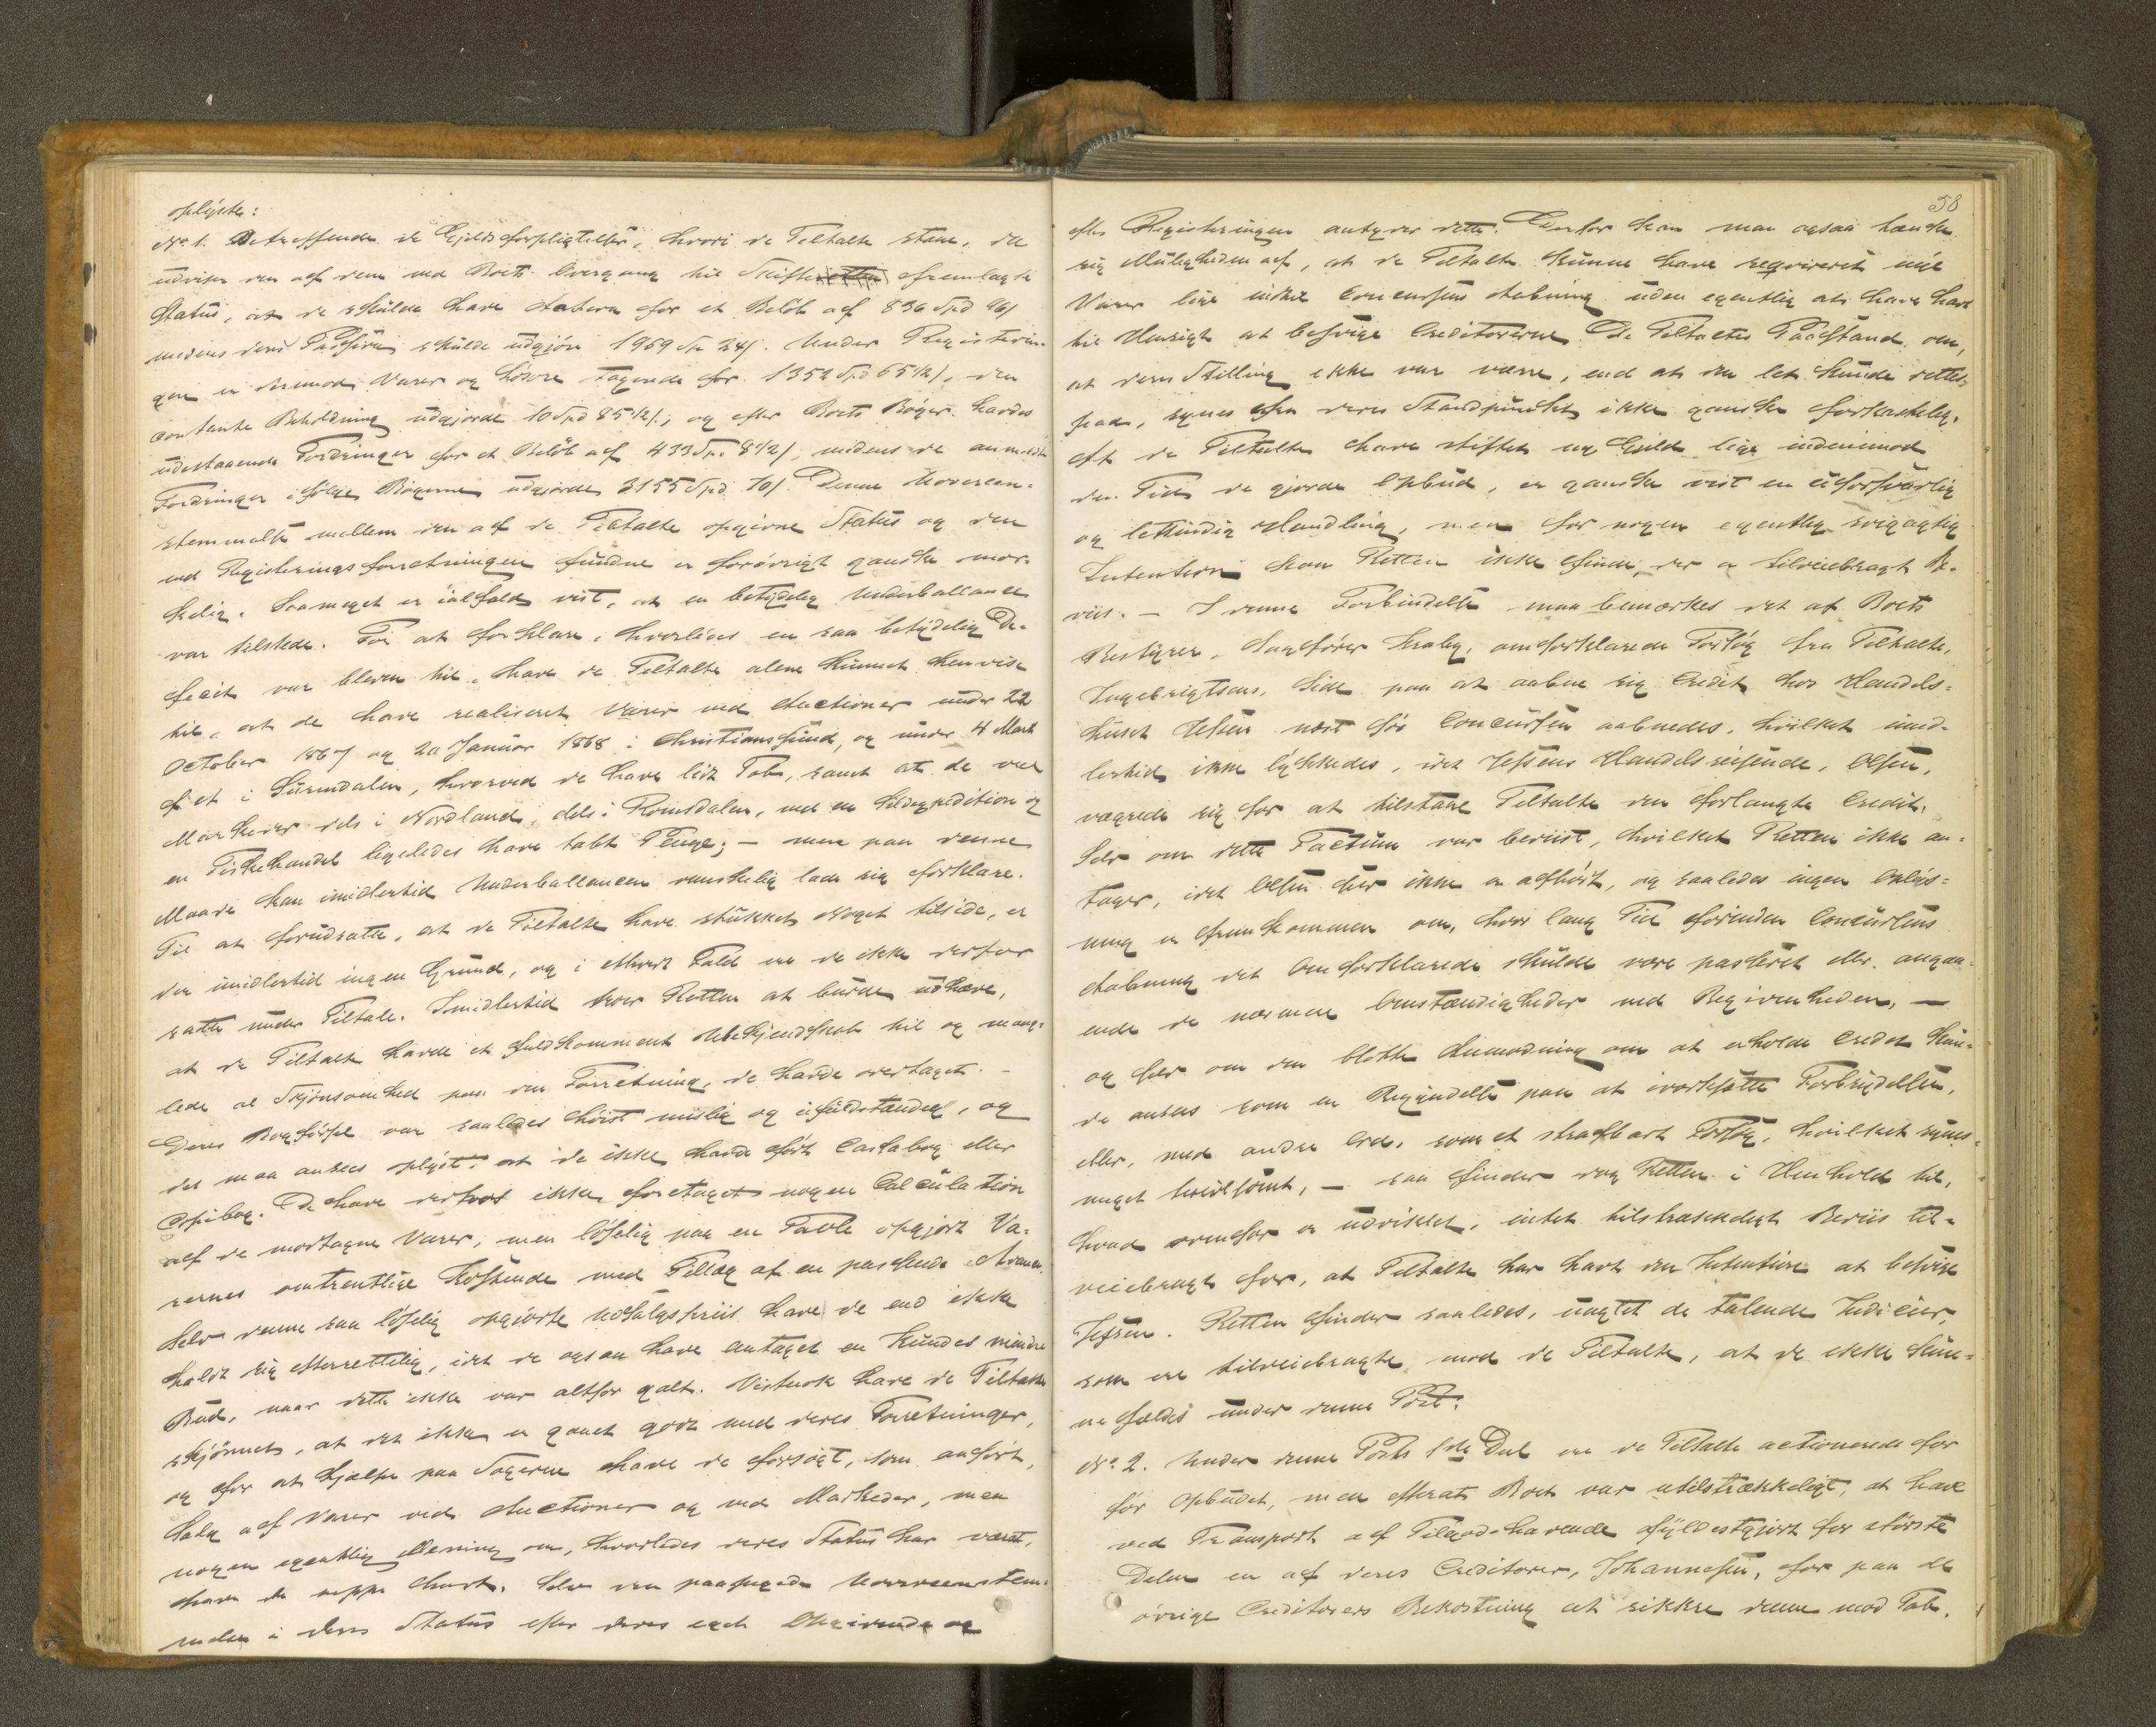 oplyst:
No 1. Betreffende de Gjeldsforpligtelser, hvori de Tiltalte staae, da
udviser den af dem ved Boets Overgang til Skifteretten fremlagte
Status, at de skulde have Activa for et Beløb af 836 Spd 96 ß
medens deres Passiva skulde udgjøre 1969 Sp 24 ß. Under Registerin-
gen er derimod Varer og Løsøre tagende for 1352 Spd 65½ ß, den
contante Beholdning udgjorde 10 Spd 85½ ß; og efter Boets Bøger havdes
udestaaende Fordringer for et Beløb af 433 Sp. 8½ ß, medens de anmeldte
Fordringer ifølge Bøgerne udgjorde 3155 Spd 10 ß. Denne Uoverens-
stemmelse mellem den af de Tiltalte opgivne Status og den
ved Registeringsforretningen fundne er forøvrigt ganske mær-
kelig. Saameget er ialfald vist, at en betydelig Underballance
var tilstede. For at forklare, hvorledes en saa betydelig De-
ficit var bleven til, have de Tiltalte alene kunnet henvise
til, at de have realiseret Varer ved Auctioner under 22
October 1867 og 20 Januar 1868 i Christianssund, og under 4 Marts
s. A. i Surendalen, hvorved de have lidt Tab, samt at de ved
Markeder dels i Nordland, dels i Romsdalen, ved en Sildexpedition og
en Fiskehandel ligeledes have tabt Penge; – men paa denne
Maade kan imidlertid Underballancen vanskelig lade sig forklare.
Til at forudsætte, at de Tiltalte have stukket Noget tilside, er
der imidlertid ingen Grund, og i ethvert Fald ere de ikke derfor
satte under Tiltale. Imidlertid troer Retten at burde udhæve,
at de Tiltalte havde et fuldkomment Ubekjendskab til og mang-
lede al Skjønsomhed paa den Forretning, de havde overtaget. –
Deres Bogførsel var saaledes høist mislig og ufuldstændig, og
det maa ansees oplyst, at de ikke havde ført Cassabog eller
Copibog. De have derhos ikke foretaget nogen Calculation
af de modtagne Varer, men løselig paa en Tavle opgjort Va-
rernes omtrentlige Kostende med Tillæg af en passende Avance.
Selv denne saa løselig opgjorte Udsalgspriis have de end ikke
holdt sig efterrettelig, idet de ogsaa have antaget en Kundes mindre
Bud, naar dette ikke var altfor galt. Vistnok have de Tiltalte
skjønnet, at det ikke er gaaet godt med deres Forretninger,
og for at hjælpe paa Sagerne have de forsøgt, som anført,
Salg af Varer ved Auctioner og ved Markeder, men
nogen egentlig Mening om, hvorledes deres Status har været,
have de neppe havt. Selv den paapegede Uoverensstem-
melse i deres Status efter deres eget Opgivende og
58
efter Registeringen antyder dette. Derfor kan man ogsaa tænke
sig Muligheden af, at de Tiltalte kunne have reqvireret nye
Varer lige indtil Concursens Aabning uden egentlig at have havt
til Hensigt at besvige Creditorerne. De Tiltaltes Paastand om,
at deres Stilling ikke var værre, end at den let kunde rettes
paa, synes fra deres Standpunkt ikke ganske forkastelig.
At de Tiltalte have stiftet ny Gjeld lige indenimod
den Tid de gjorde Opbud, er ganske vist en uforsvarlig
og letsindig Handling, men for nogen egentlig svigagtig
Intention kan Retten ikke finde, der er tilveiebragt Be-
viis. – I denne Forbindelse maa bemærkes det af Boets
Bestyrer, Sagfører Kraby, omforklarede Forsøg fra Tiltalte,
Ingebrigtsens, Side paa at aabne sig Credit hos Handels-
huset Jessen næst før Concursen aabnedes, hvilket imid-
lertid ikke lykkedes, idet Jessens Handelsreisende, Olsen,
vægrede sig for at tilstaae Tiltalte den forlangte Credit.
Selv om dette Factum var beviist, hvilket Retten ikke an-
tager, idet Olsen her ikke er afhørt, og saaledes ingen Oplys-
ning er fremkommen om, hvor lang Tid forinden Concursens
Aabning det Omforklarede skulde være passeret eller angaa-
ende de nærmere Omstændigheder ved Begivenheden, –
og selv om den blotte Anmodning om at erholde Credit kun-
de ansees som en Begyndelse paa at iværksætte Forbrydelsen,
eller, med andre Ord, som et strafbart Forsøg, hvilket synes
meget tvivlsomt, – saa finder dog Retten i Henhold til,
hvad ovenfor er udviklet, intet tilstrækkeligt Beviis til-
veiebragt for, at Tiltalte har havt den Intention at besvige
Jessen. Retten finder saaledes, uagtet de talende Indicier,
som ere tilveiebragte mod de Tiltalte, at de ikke kun-
ne fældes under denne Post.
No 2. Under denne Posts 1ste Deel ere de Tiltalte actionerede for
før Opbudet, men efterat Boet var utilstrækkeligt, at have
ved Transport af Tilgodehavende fyldestgjort for største
Delen en af deres Creditorer, Johannesen, for paa de
øvrige Creditorers Bekostning at sikkre denne mod Tab.